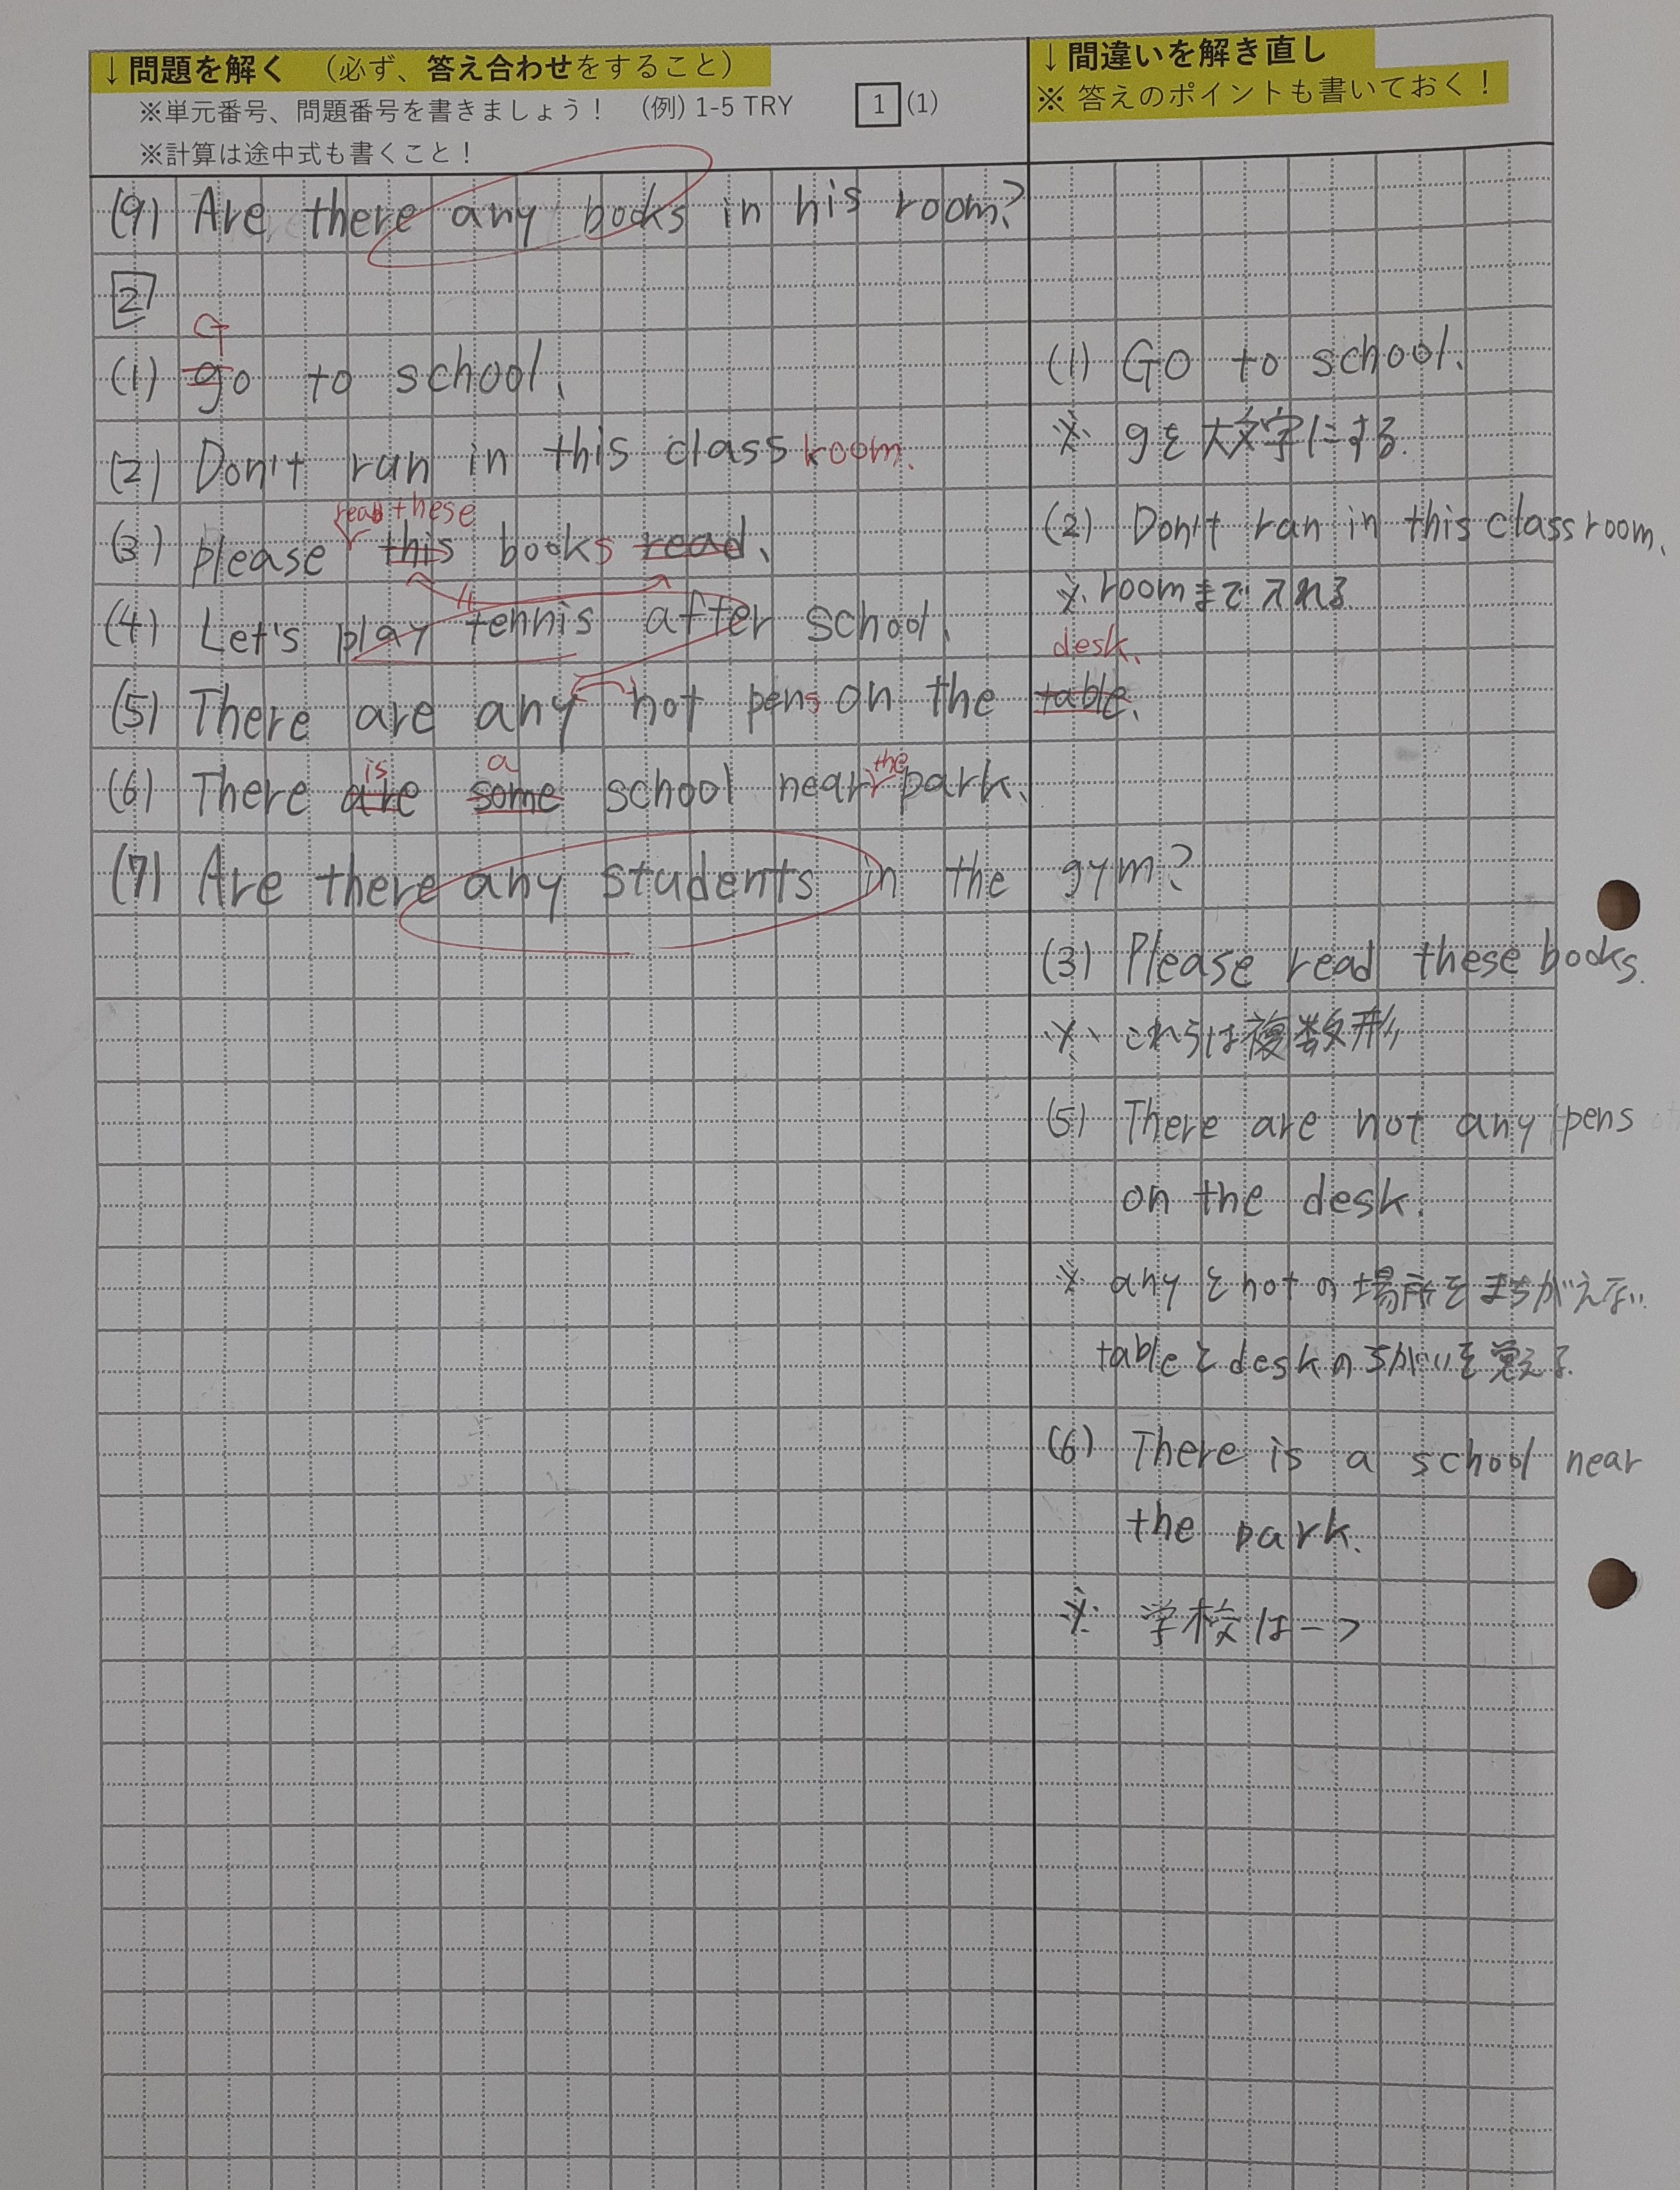 ↓問題を解く （必ず、答え合わせをすること）
※単元番号、問題番号を書きましょう！ (例) 1-5 TRY 1 (1)
※計算は途中式も書くこと！
(9) Are there any books in his room?
2
G
(1) go to school.
(2) Don't ran in this class room.
read these
(3) please this books read.
(4) Let's play tennis after school.
(5) There are any not pens on the table.
desk.
is a the
(6) There are some school near park.
(7) Are there any students in the gym?
↓間違いを解き直し
※ 答えのポイントも書いておく！
(1) Go to school.
※ gを大文字にする.
(2) Don't ran in this classroom.
※ roomまで入れる
(3) Please read these books.
※ これらは複数形
(5) There are not any pens
on the desk.
※ anyとnotの場所をまちがえない
tableとdeskのちがいを覚える.
(6) There is a school near
the park.
※ 学校は一つ